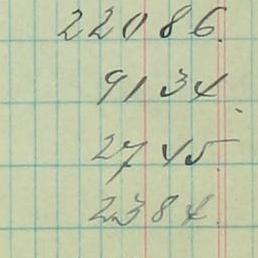 22086.
9134.
2745.
2384.